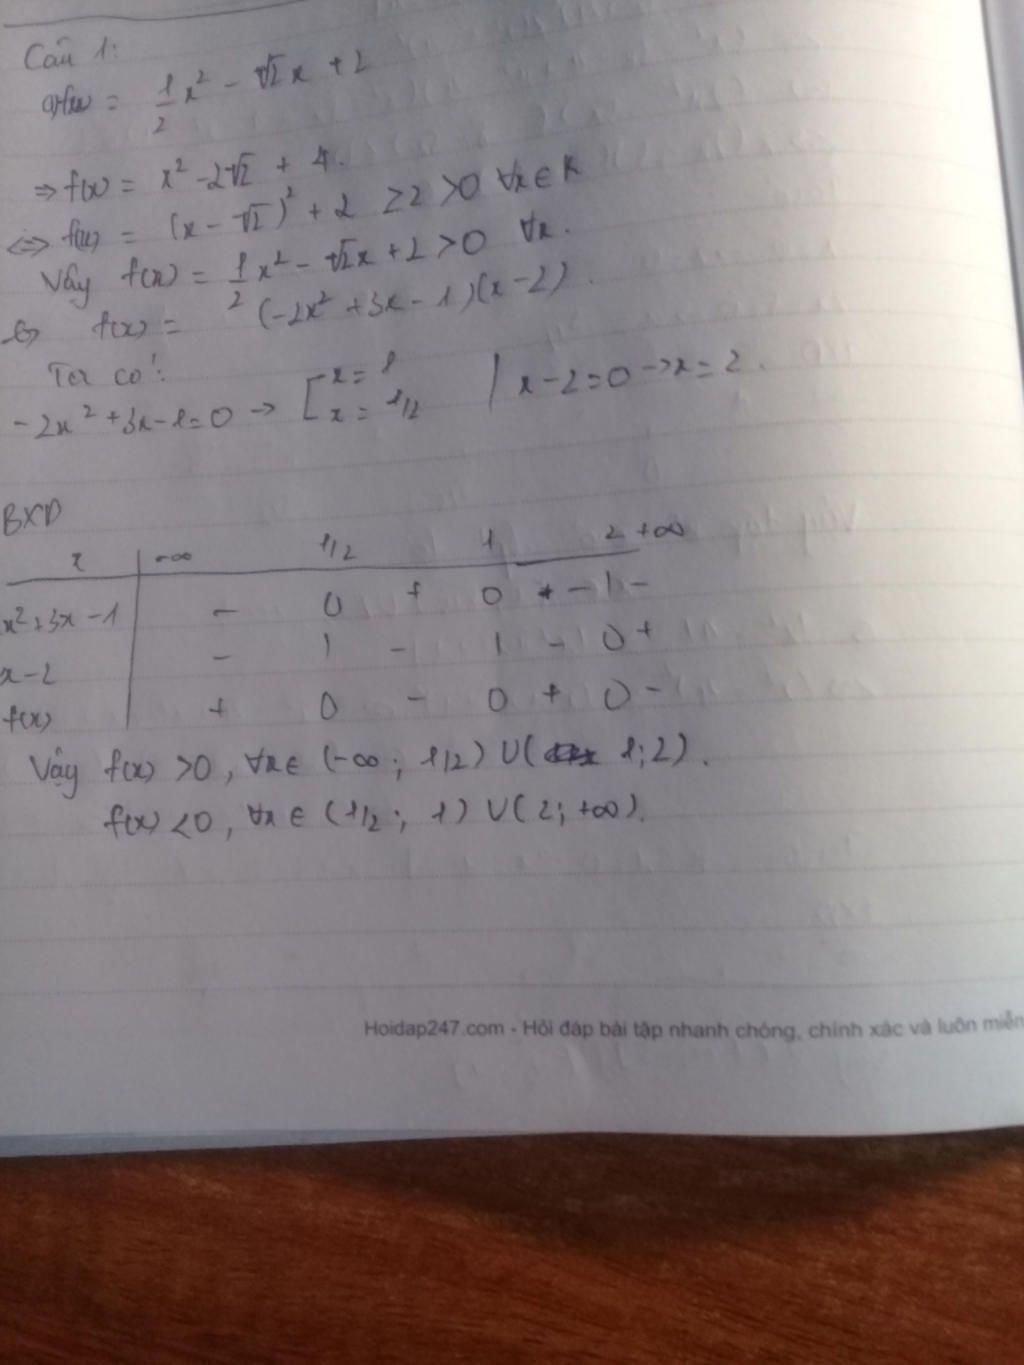 Câu 1:
a) f(x) = 1/2 x² - √2 x + 2
=> f(x) = x² - 2√2 + 4.
<=> f(x) = (x - √2)² + 2 ≥ 2 > 0 ∀x ∈ R
Vậy f(x) = 1/2 x² - √2x + 2 > 0 ∀x.
b) f(x) = (-2x² + 3x - 1)(x - 2).
Ta có:
-2x² + 3x - 1 = 0 -> [ x = 1 | x - 2 = 0 -> x = 2.
x = 1/2
BXD
x | -∞ 1/2 1 2 +∞
x² + 3x - 1 | - 0 + 0 - | -
x - 2 | - | - | - 0 +
f(x) | + 0 - 0 + 0 -
Vậy f(x) > 0, ∀x ∈ (-∞; 1/2) U ( 1; 2).
f(x) < 0, ∀x ∈ (1/2; 1) U (2; +∞).
Hoidap247.com - Hỏi đáp bài tập nhanh chóng, chính xác và luôn miễn